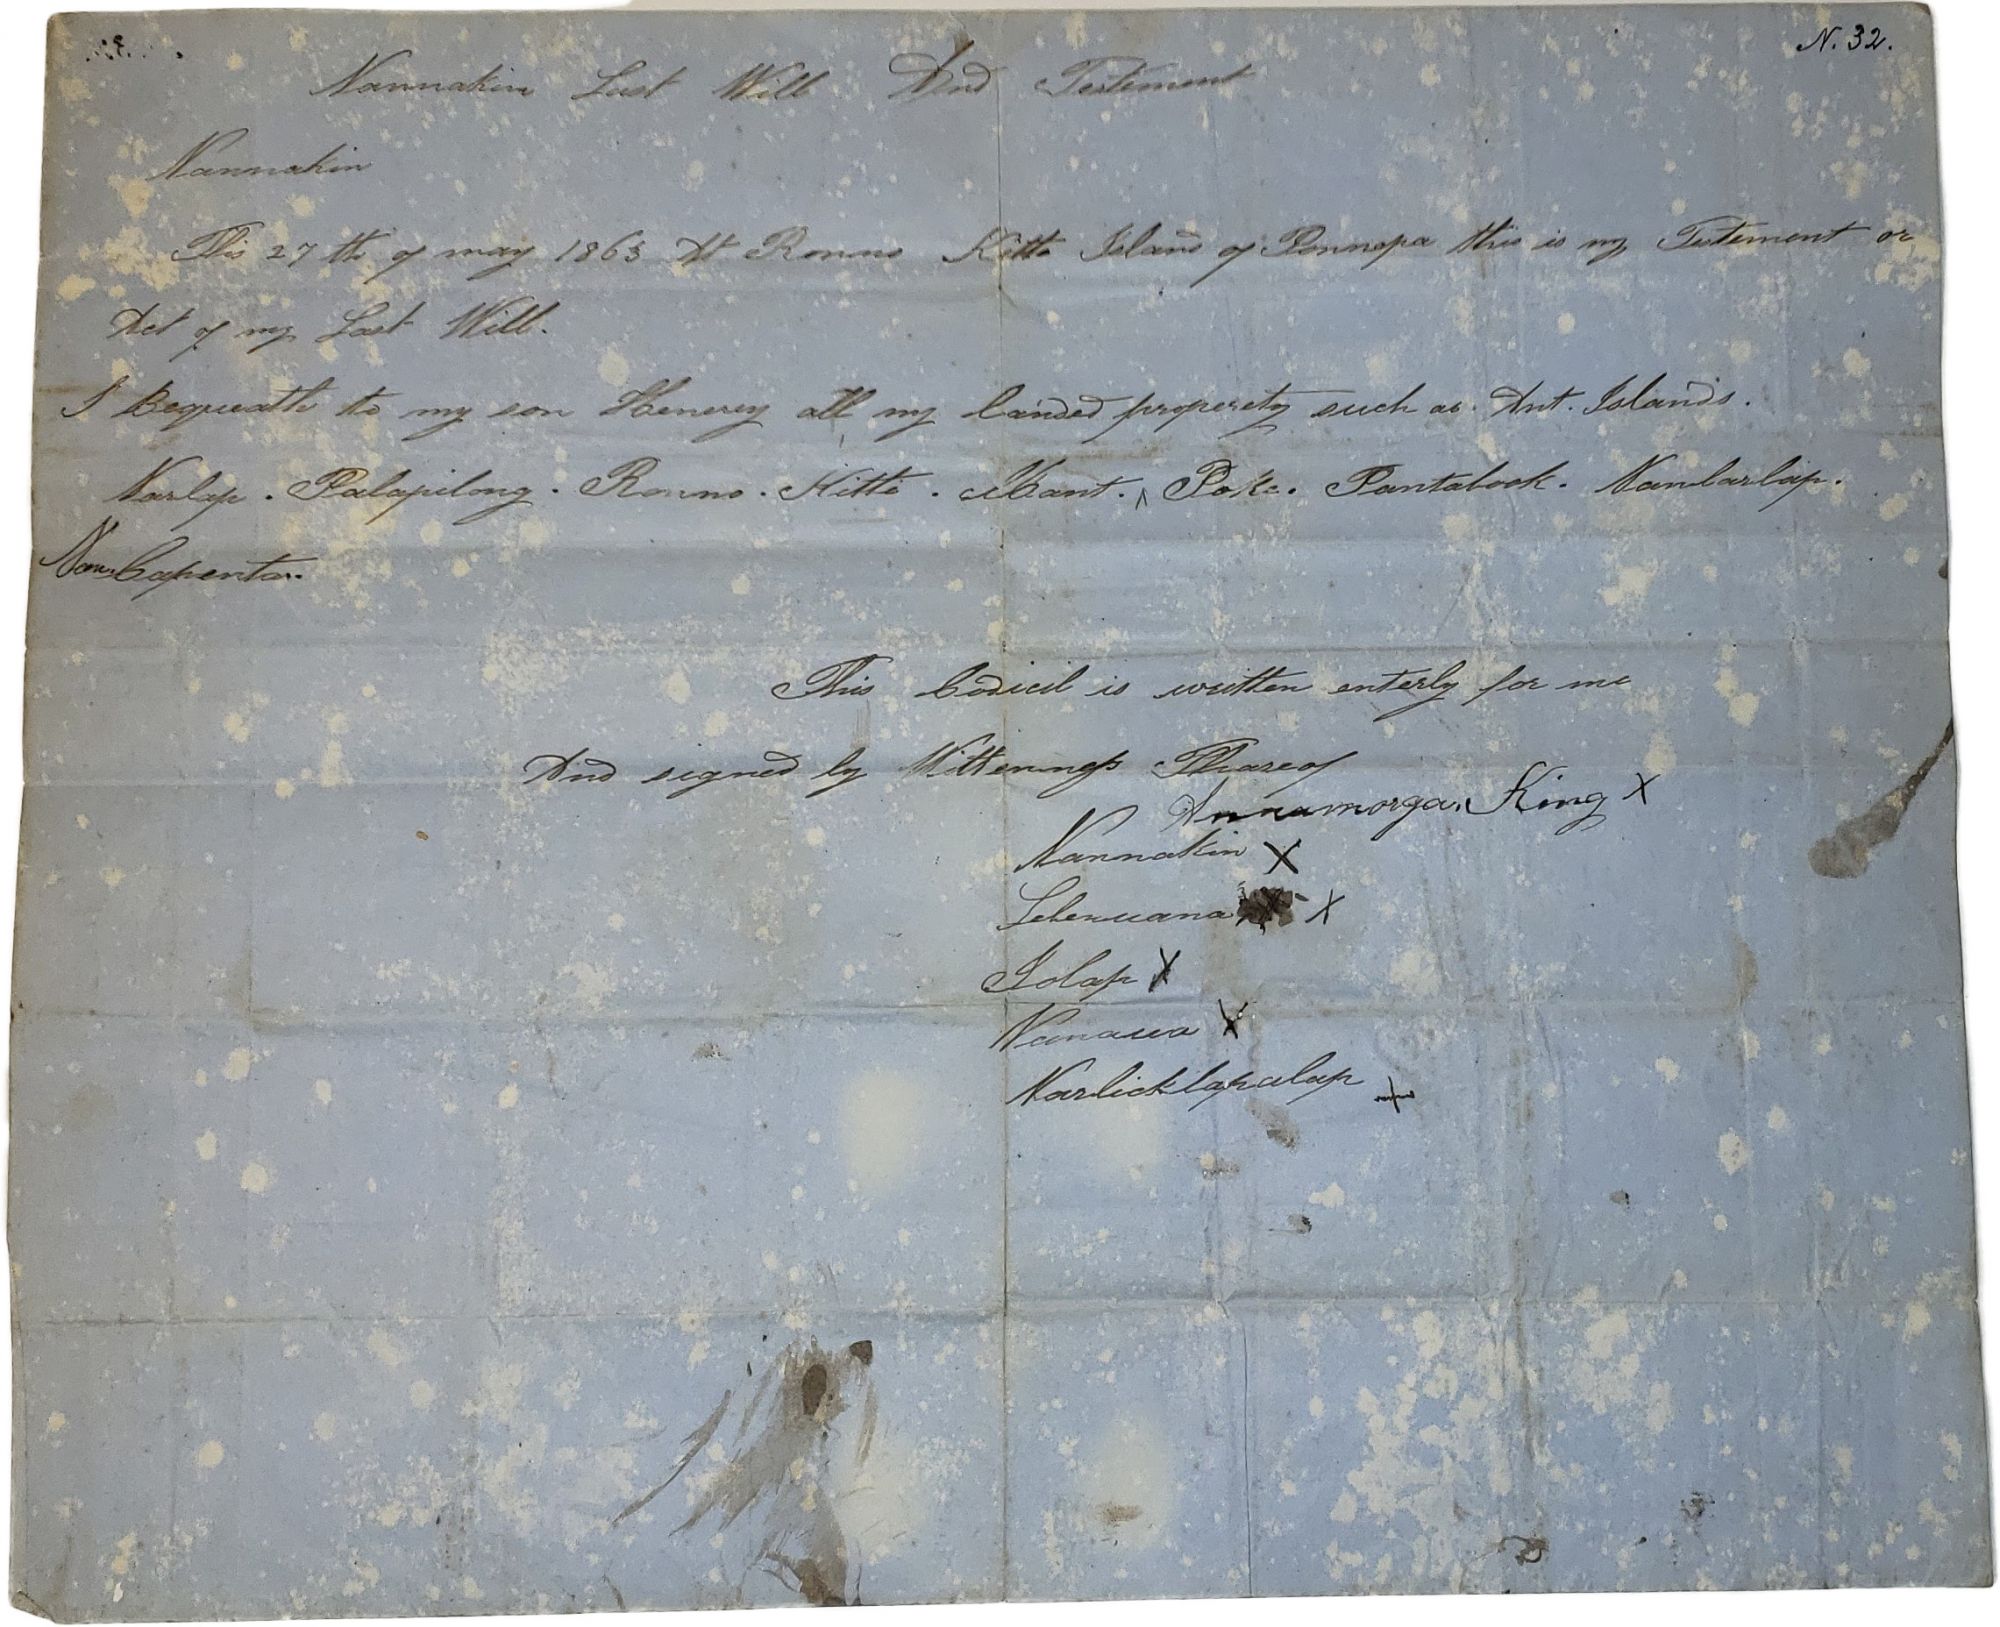 N. 32.
Nannakin Last Will And Testement
Nannakin
This 27 th of may 1863 At Ronno Kitto Island of Ponnopa this is my Testement or
Act of my Last Will.
I Bequeath to my son Henerey all my landed properety such as. Ant. Islands.
Narlap. Palapilong. Ronno. Kitto. Mant. ^ Poke. Pantalook. Nanlarlap.
Nan Capentar.
This Codicil is written enterly for me
And signed by Wittenings Thareof
Annamorga. King X
Nannakin X
Lelenuana X
Jolap X
Nanaua X
Narlicklapalap X